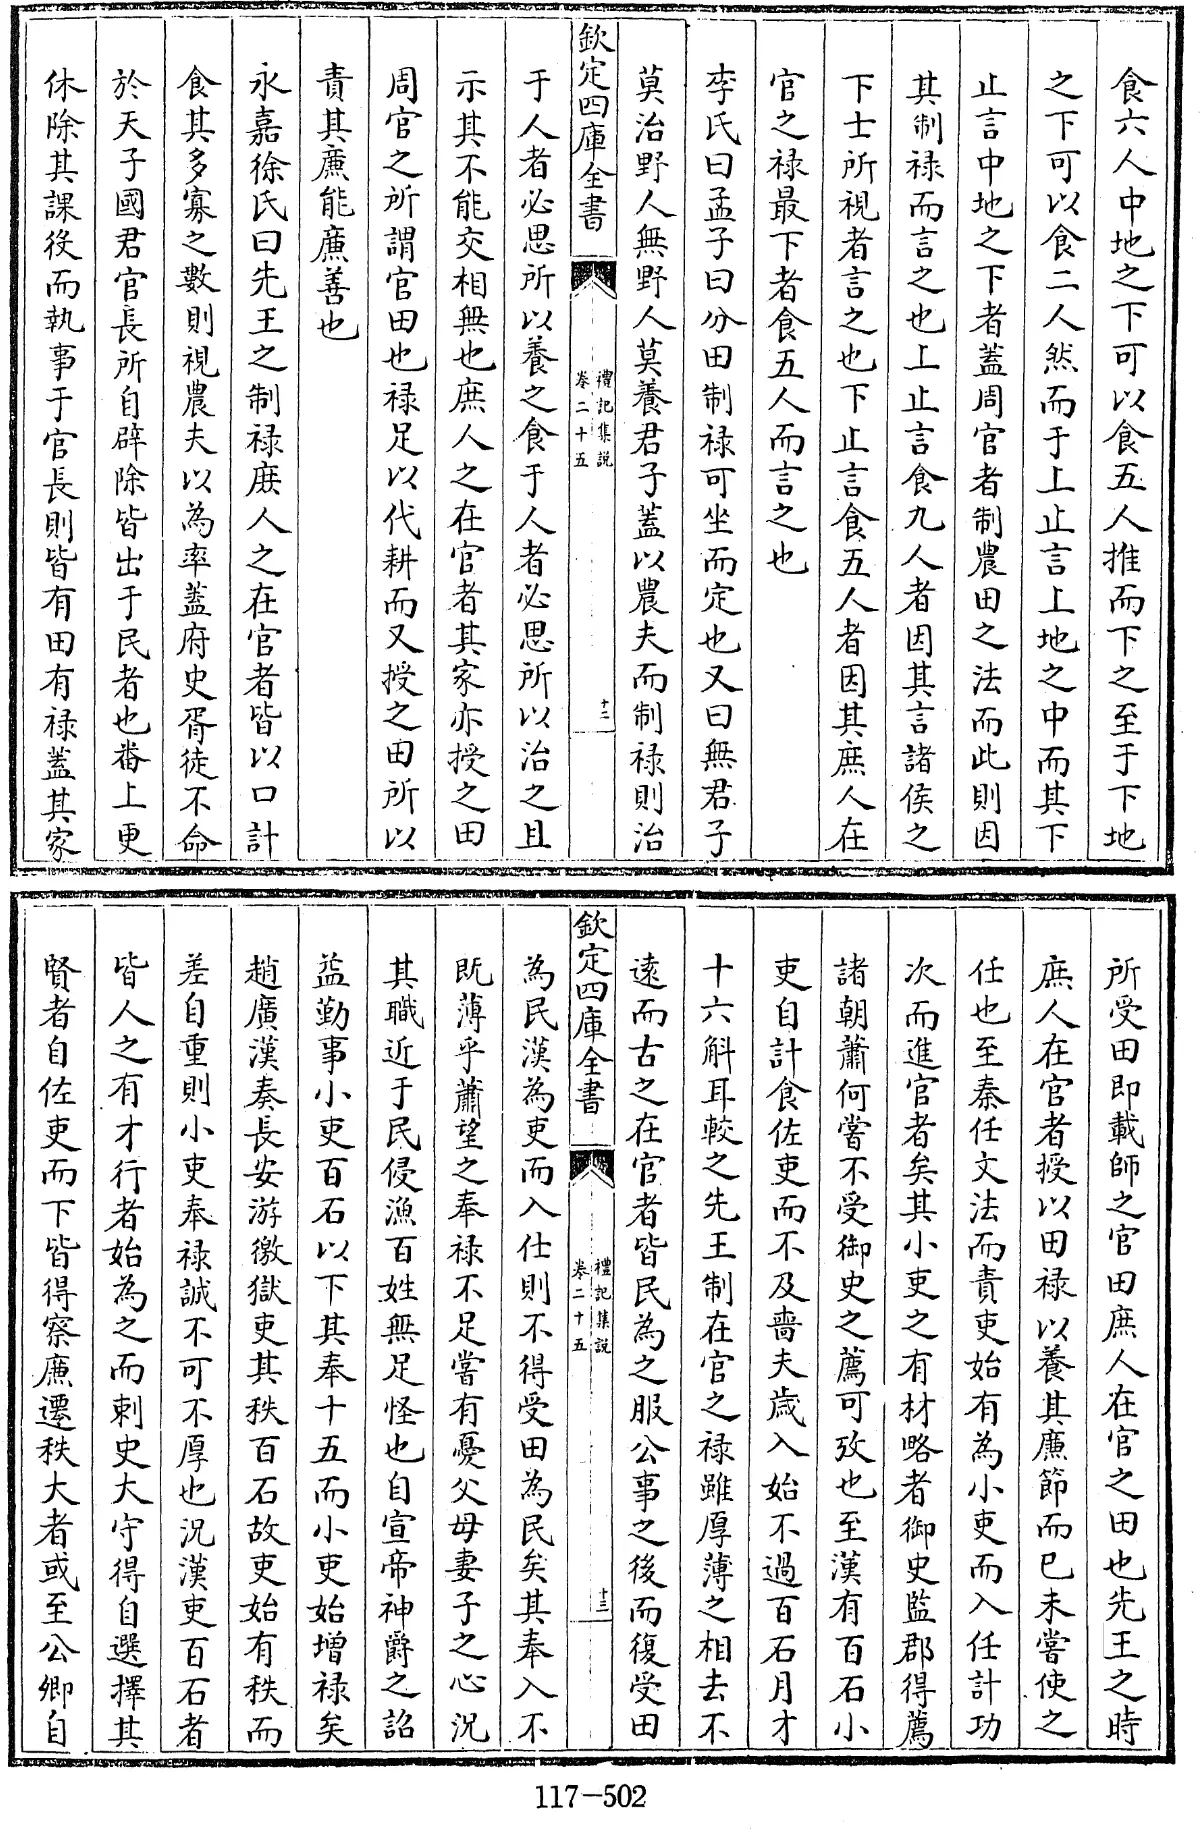 食六人中地之下可以食五人推而下之至于下地
之下可以食二人然而于上止言上地之中而其下
止言中地之下者蓋周官者制農田之法而此則因
其制禄而言之也上止言食九人者因其言諸侯之
下士所視者言之也下止言食五人者因其庶人在
官之禄最下者食五人而言之也
李氏曰孟子曰分田制禄可坐而定也又曰無君子
莫治野人無野人莫養君子蓋以農夫而制禄則治
欽定四庫全書
禮記集說
卷二十五
十二
于人者必思所以養之食于人者必思所以治之且
示其不能交相無也庶人之在官者其家亦授之田
周官之所謂官田也禄足以代耕而又授之田所以
責其廉能廉善也
永嘉徐氏曰先王之制禄庶人之在官者皆以口計
食其多寡之數則視農夫以為率蓋府史胥徒不命
於天子國君官長所自辟除皆出于民者也番上更
休除其課役而執事于官長則皆有田有禄蓋其家
所受田即載師之官田庶人在官之田也先王之時
庶人在官者授以田禄以養其廉節而已未嘗使之
任也至秦任文法而責吏始有為小吏而入任計功
次而進官者矣其小吏之有材略者御史監郡得薦
諸朝蕭何嘗不受御史之薦可攷也至漢有百石小
吏自計食佐吏而不及嗇夫歲入始不過百石月才
十六斛耳較之先王制在官之禄雖厚薄之相去不
遠而古之在官者皆民為之服公事之後而復受田
欽定四庫全書
禮記集說
卷二十五
十三
為民漢為吏而入仕則不得受田為民矣其奉入不
既薄乎蕭望之奉禄不足嘗有憂父母妻子之心況
其職近于民侵漁百姓無足怪也自宣帝神爵之詔
益勤事小吏百石以下其奉十五而小吏始增禄矣
趙廣漢奏長安游徼獄吏其秩百石故吏始有秩而
差自重則小吏奉禄誠不可不厚也況漢吏百石者
皆人之有才行者始為之而刺史大守得自選擇其
賢者自佐吏而下皆得察廉遷秩大者或至公卿自
117-502